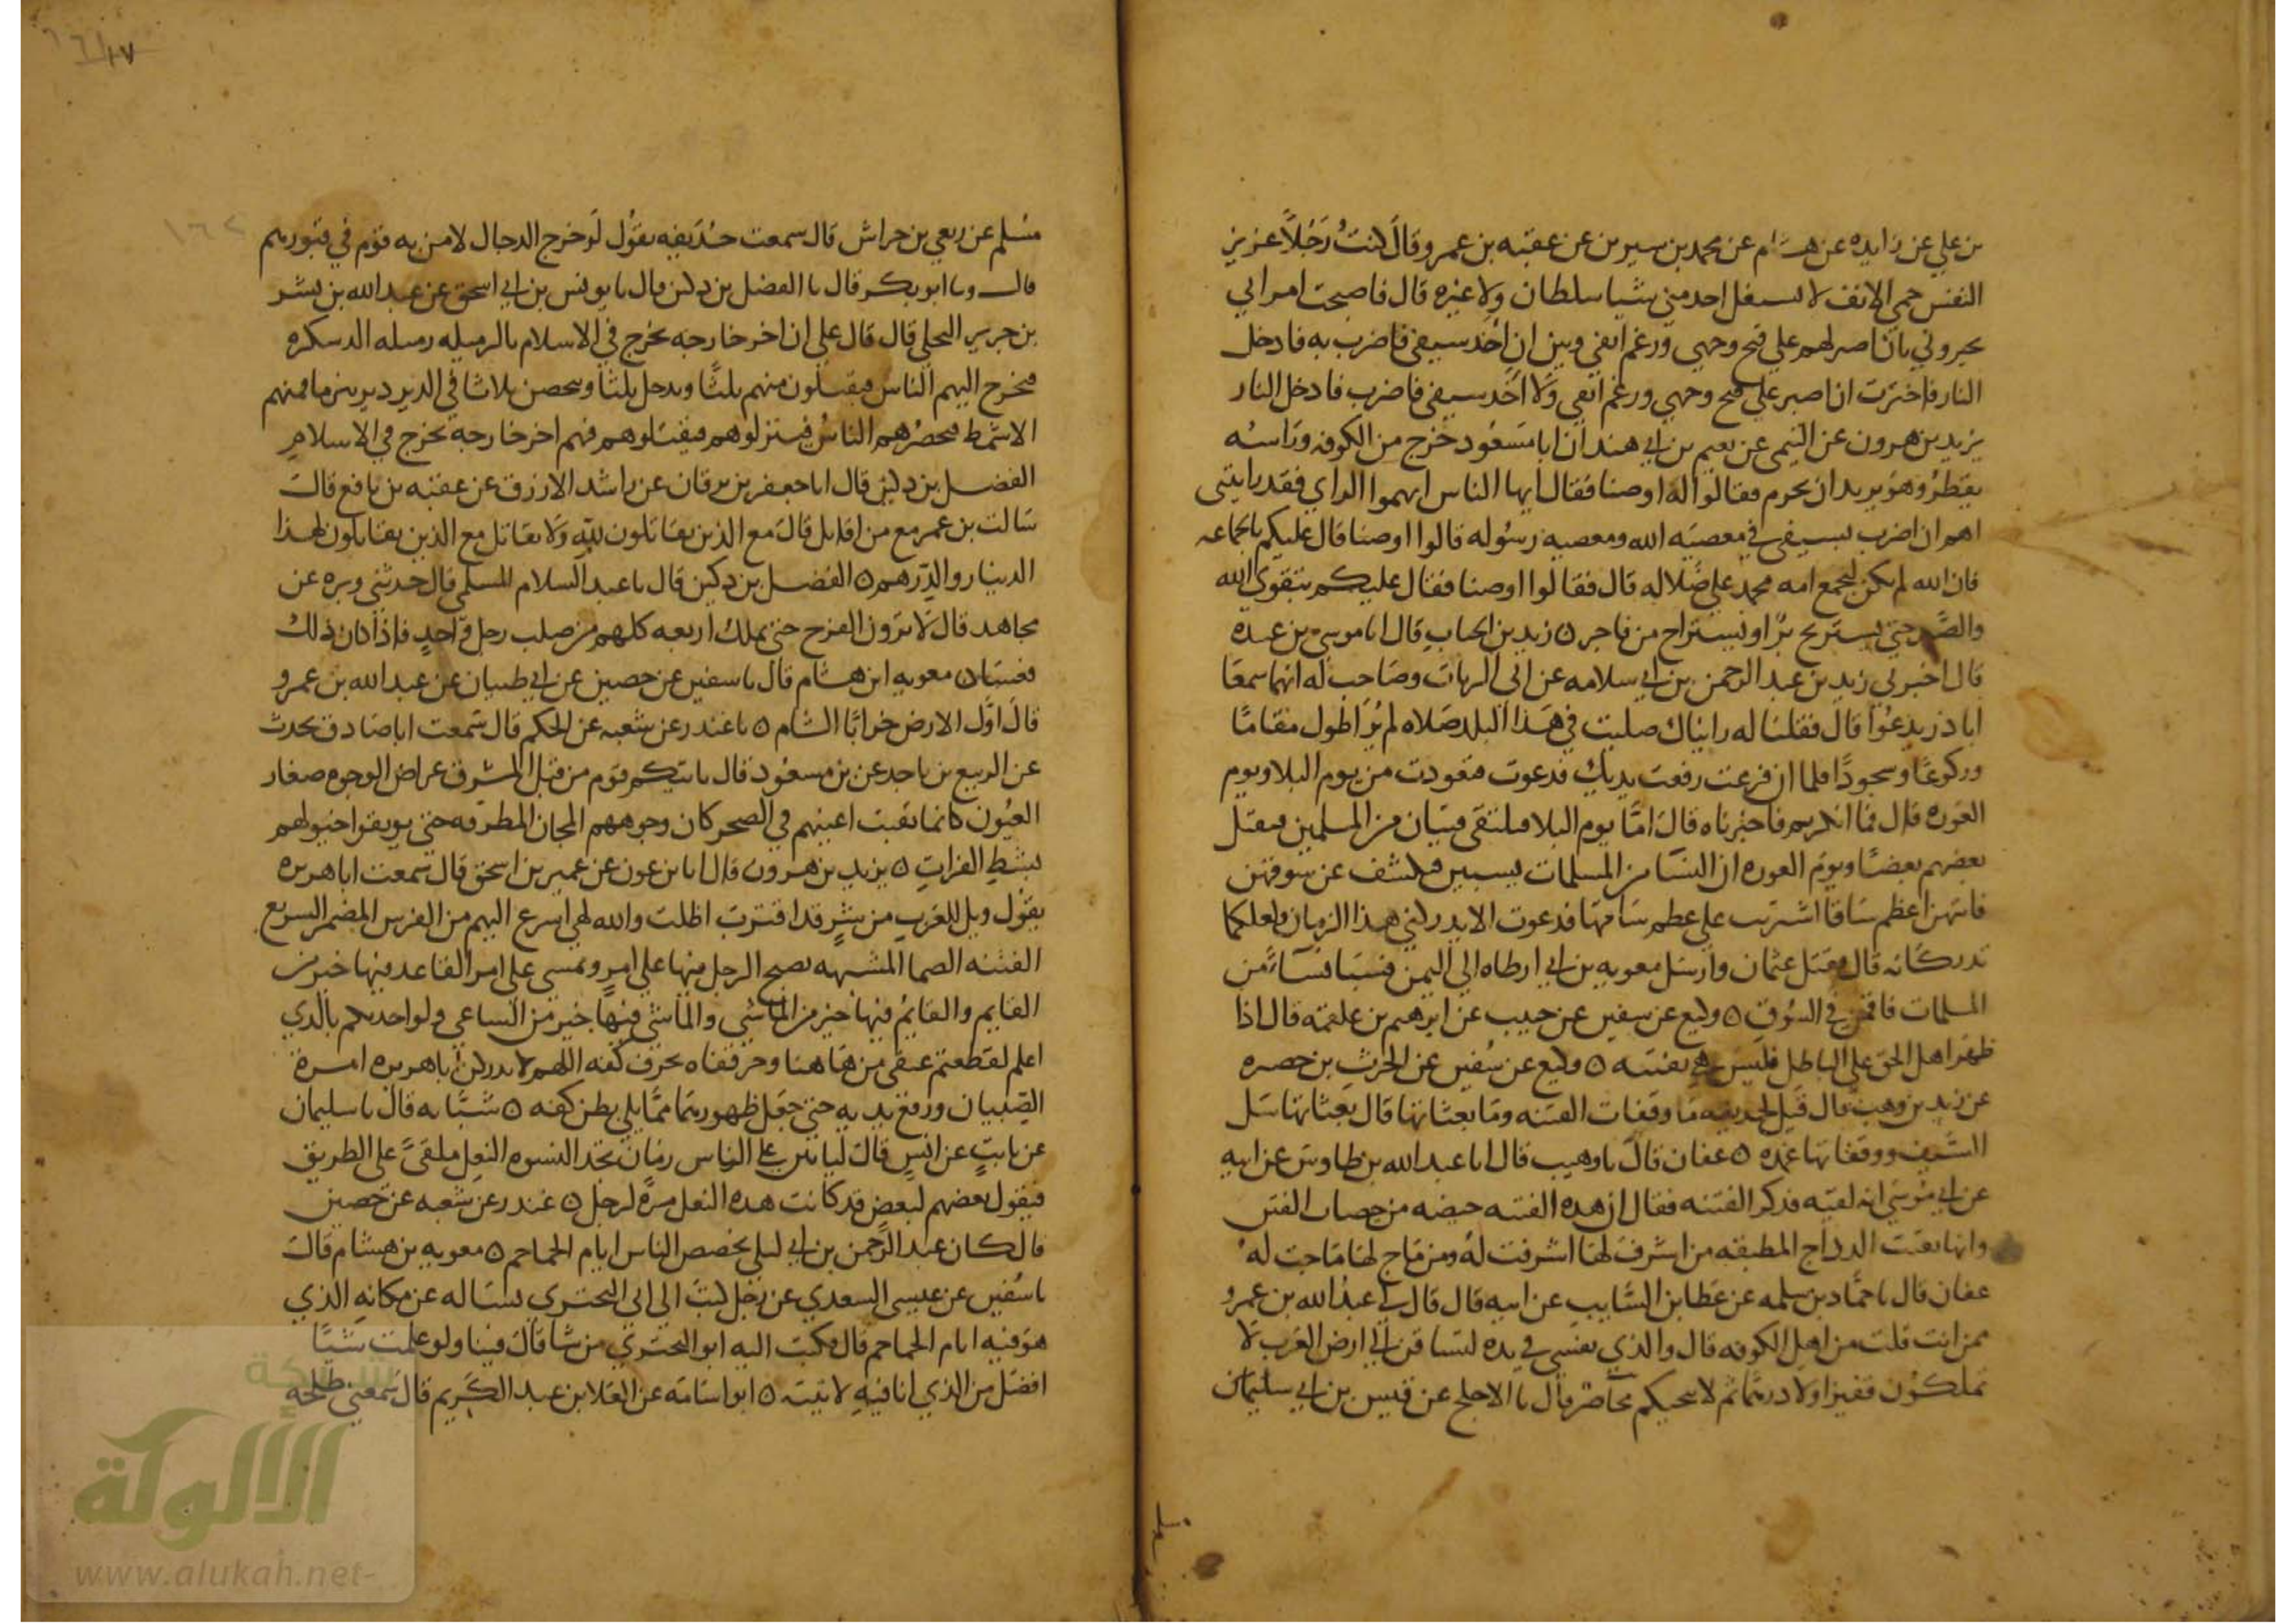 بن علي عن زايده عن هشام عن محمد بن سيرين عن عقبه بن عمرو قال كنتُ رَجُلاً عزيز
النفس حمي الانف لا يستقل احد مني شيا سلطان ولا غيره قال فاصبحت امراي
يخيروني بان اصبر لهم علي قبح وجهي ورغم انفي وبين ان اخذ سيفي فاضرب به فادخل
النار فاخترت ان اصبر علي قبح وجهي ورغم انفي ولا اخذ سيفي فاضرب فادخل النار
يزيد بن هرون عن التيمي عن نعيم بن ابي هند ان ابا مسعود خرج من الكوفه وراسه
يقطر وهو يريد ان يحرم فقالوا له اوصنا فقال ايها الناس اتهموا الراي فقد رايتني
اهم ان اضرب بسيفي في معصيه الله ومعصيه رسُوله قالوا اوصنا قال عليكم بالجماعه
فان الله لم يكن ليجمع امه محمد علي ضلاله قال فقالوا اوصنا فقال عليكم بتقوي الله
والصبر حتي يستريح برّ او يستراح من فاجر ٥ زيد بن الحباب قال انا موسي بن عبيده
قال اخبرني زيد بن عبد الرحمن بن ابي سلامه عن ابي الرباب وصاحب له انهما سمعا
ابا ذر يدعُوا قال فقلنا له رايناك صليت في هذا البلد صلاه لم نُرَ اطول مقامًا
وركوعًا وسجودًا فلما ان فرغت رفعت يديك فدعوت فتعوذت من يوم البلا ويوم
العوره قال فما انكرتم فاخبرناه قال امّا يوم البلا فيلتقي فتيان من المسلمين فيقتل
بعضهم بعضًا ويوم العوره ان النسا من المسلمات يسبين فيكشف عن سوقهن
فايتهن اعظم ساقا اشتريت علي عظم ساقها فدعوت الا يدركني هذا الزمان ولعلكما
تدركانه قال فقتل عثمان وارسل معويه بن ابي ارطاه الي اليمن فسبا نساء من
المسلمات فاقمن في السوق ٥ وكيع عن سفين عن حبيب عن ابرهيم بن علقمه قال اذا
ظهر اهل الحق علي الباطل فليس هي بفتنه ٥ وكيع عن سُفين عن الحرث بن حصره
عن زيد بن وهب قال قيل لحذيفه ما وقفات الفتنه وما بعثاتها قال بعثاتها سل
السّيف ووقفاتها غمده ٥ عفان قال نا وهيب قال انا عبد الله بن طاوس عن ابيه
عن ابي موسي انه لقيه فذكر الفتنه فقال ان هذه الفتنه حيضه من حيضات الفتن
وانها بقيت الرداح المطبقه من اشرف لها اشرفت له ومن ماج لها ماجت له
عفان قال نا حمّاد بن سلمه عن عطا بن السّايب عن ابيه قال قال لي عبد الله بن عمرو
ممن انت قلت من اهل الكوفه قال والذي نفسي في يده لتساقن الي ارض العرب لا
تملكون قفيزا ولا درهمًا ثم لا ينجيكم قال نا الاجلح عن قيس بن ابي سليمان
مسُلم عن ربعي بن حراش قال سمعت حذيفه يقول لو خرج الدجال لامن به قوم في قبورهم
قال ونا ابو بكر قال نا الفضل بن دكين قال نا يونس بن ابي اسحق عن عبد الله بن بشر
بن جرير البجلي قال قال علي ان اخر خارجه تخرج في الاسلام بالرميله رميله الدسكره
فيخرج اليهم الناس فيقتلون منهم ثلثًا ويدخل ثلثا ويتحصن ثلاثا في الدير دير مرما فمنهم
الاشمط فيحصُرهم الناسُ فينزلوهم فيقتلوهم فهم اخر خارجه تخرج في الاسلام
الفضل بن دكين قال انا جعفر بن برقان عن راشد الازرق عن عقبه بن نافع قال
سالت بن عمر مع من اقاتل قال مع الذين يقاتلون لله ولا تقاتل مع الذين يقاتلون لهذا
الدينار والدرهم ٥ الفضل بن دكين قال نا عبد السلام المسلمي قال حدثني وبره عن
مجاهد قال لا ترون الفرح حتي يملك اربعه كلهم من صلب رجل واحدٍ فاذا كان ذلك
فعسا ٥ معويه ابن هشام قال نا سفين عن حصين عن ابي ظبيان عن عبد الله بن عمرو
قال اوّل الارض خرابًا الشام ٥ نا غندر عن شعبه عن الحكم قال سَمعت ابا صادق يحدث
عن الربيع بن ناجد عن بن مسعُود قال ياتيكم قوم من قبل المشرق عراض الوجوه صغار
العيُون كانما نقبت اعينهم في الصخر كان وجوههم المجان المطرقه حتي يوثقوا خيولهم
بشط الفرات ٥ يزيد بن هرون قال انا بن عون عن عمير بن اسحق قال سَمعت ابا هريره
يقوُل ويل للعرب من شرٍ قد اقتربَ اظلت والله لهي اسرع اليهم من الفرس المضمر السريع
الفتنه الصما المشبهه يصبح الرجل فيها علي امرٍ ويمسي علي امر القاعد فيها خير من
القايم والقايم فيها خير من الماشي والماشي فيها خير من الساعي ولو احدثكم بالذي
اعلم لقطعتم عنقي من هاهنا وحز قفاه بحرف كفه اللهم لا يدركن ابا هريره امرة
الصّبيان ورفع يديه حتي جعَل ظهورهما ممّا يلي بطن كفه ٥ شبَّابه قال نا سليمان
عن ثابت عن انس قال لياتين علي الناس زمان تجد النسوه النعل ملقيً علي الطريق
فيقول بعضهم لبعض قد كانت هذه النعل مرة لرجل ٥ غندر عن شعبه عن حصين
قال كان عبد الرّحمن بن ابي ليلي يحضض الناس ايام الجماجم ٥ معويه بن هشام قال
نا سُفين عن عيسي السعدي عن رجل كتبَ الي ابي البختري يساله عن مكانه الذي
هو فيه ايام الجماجم قال فكتب اليه ابو البختري من شا قال فينا ولو علمت شيًا
افضل من الذي انا فيه لاتيته ٥ ابو اسامه عن العلا بن عبد الكريم قال سَمعني طلحه
الألوكة
www.alukah.net